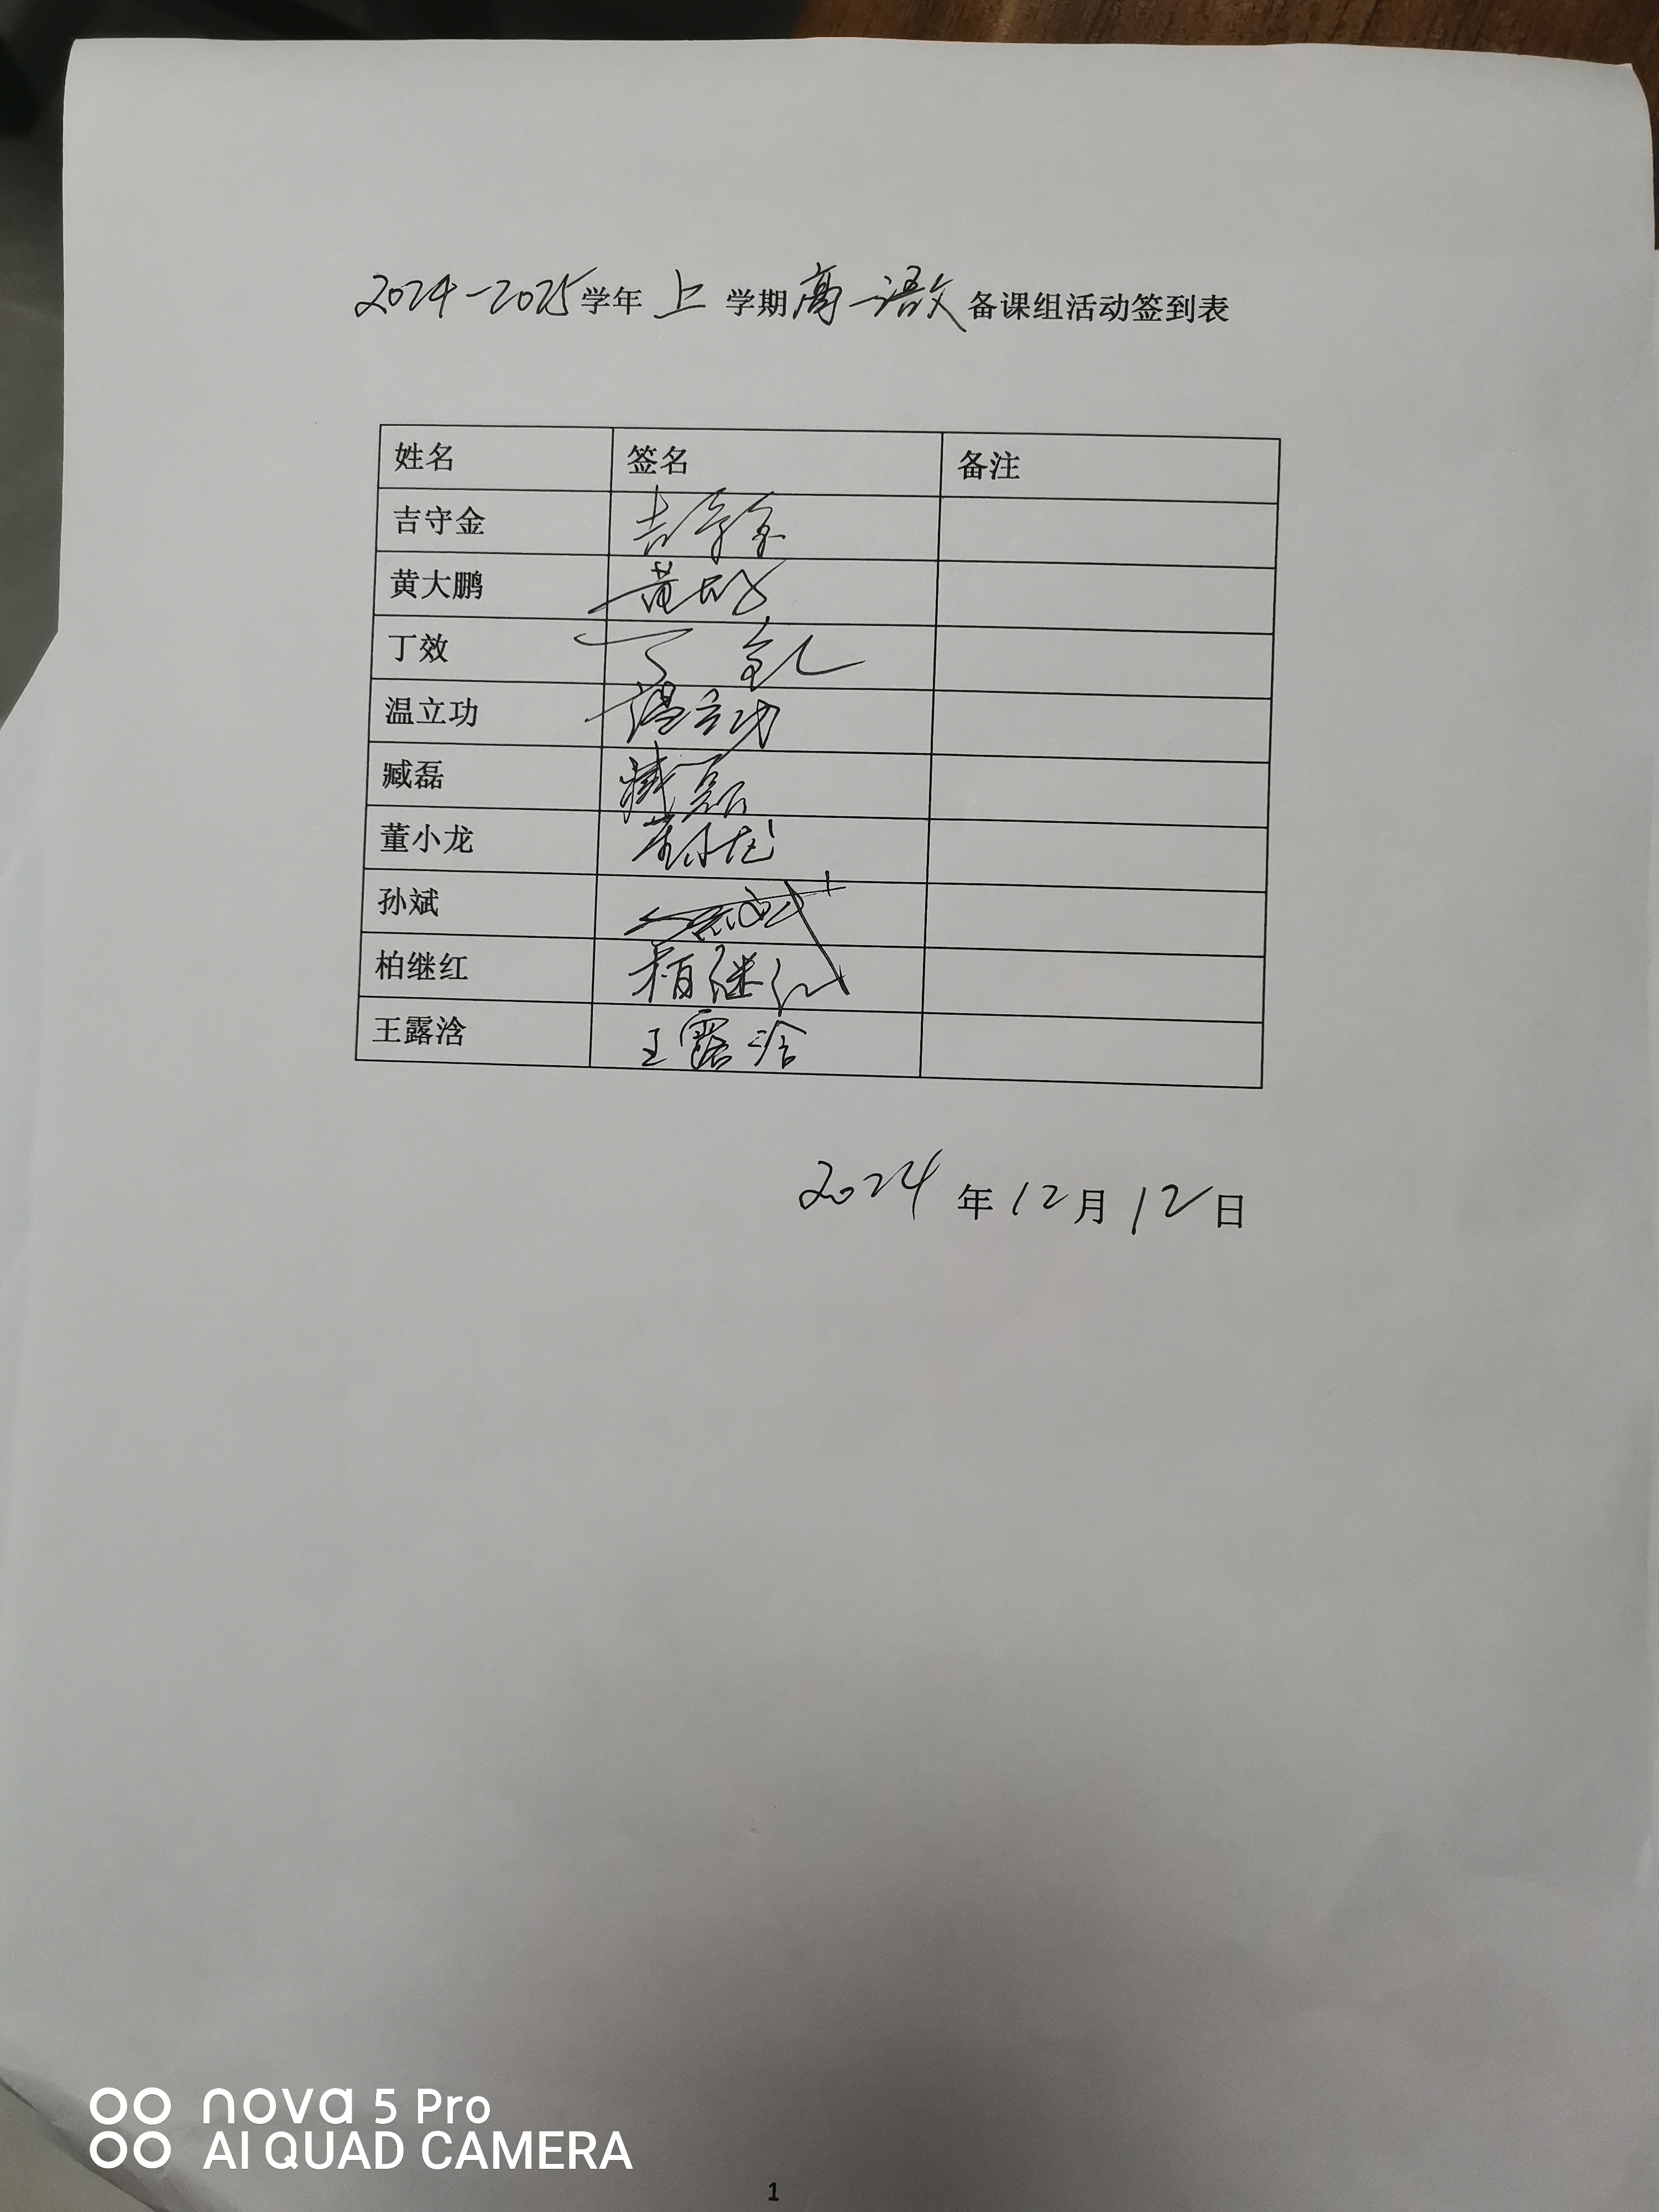 2024-2025学年 上 学期 高一语文 备课组活动签到表
姓名 签名 备注
吉守金 吉守金
黄大鹏 黄大鹏
丁效 丁效
温立功 温立功
臧磊 臧磊
董小龙 董小龙
孙斌
柏继红 柏继红
王露浛 王露浛
2024 年 12 月 12 日
nova 5 Pro
AI QUAD CAMERA
1